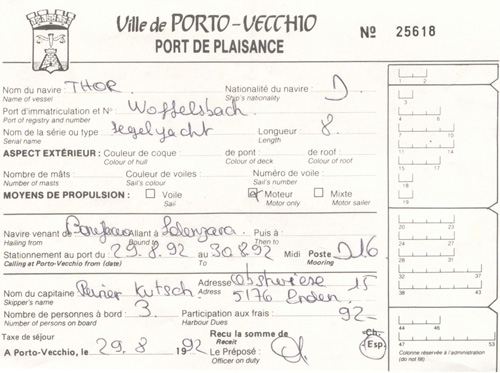 Ville de PORTO-VECCHIO
PORT DE PLAISANCE
Nº 25618
Nom du navire : THOR Nationalité du navire : D
Name of vessel Ship's nationality
Port d'immatriculation et Nº Woffelsbach
Port of registry and number
Nom de la série ou type Segelyacht Longueur 8.
Serial name Length
ASPECT EXTÉRIEUR : Couleur de coque : de pont : de roof :
Colour of hull Colour of deck Colour of roof
Nombre de mâts : Couleur de voiles : Numéro de voile :
Number of masts Sail's colour Sail's number
MOYENS DE PROPULSION : Voile Moteur Mixte
Sail Motor only Motor sailer
Navire venant de Allant à Solenzara Puis à :
Hailing from Bound to Then to
Stationnement au port du 29.8.92 au 30.8.92 Midi Poste D16
Calling at Porto-Vecchio from (date) To Mooring
Nom du capitaine Reiner Kutsch Adresse Obstwiese 15
Skipper's name Adress 5176 Enden
Nombre de personnes à bord : 3 Participation aux frais : 92-
Number of persons on board Harbour Dues
Taxe de séjour Reçu la somme de Ch.
Receit Esp.
A Porto-Vecchio, le 29. 8 1992 Le Préposé :
Officer on duty
1 2
3
4 7
5 10
6 14
11
15
16 17
18
19
20
21
22
37
38 43
44 46
47 53
Colonne réservée à l'administration
(do not fill)